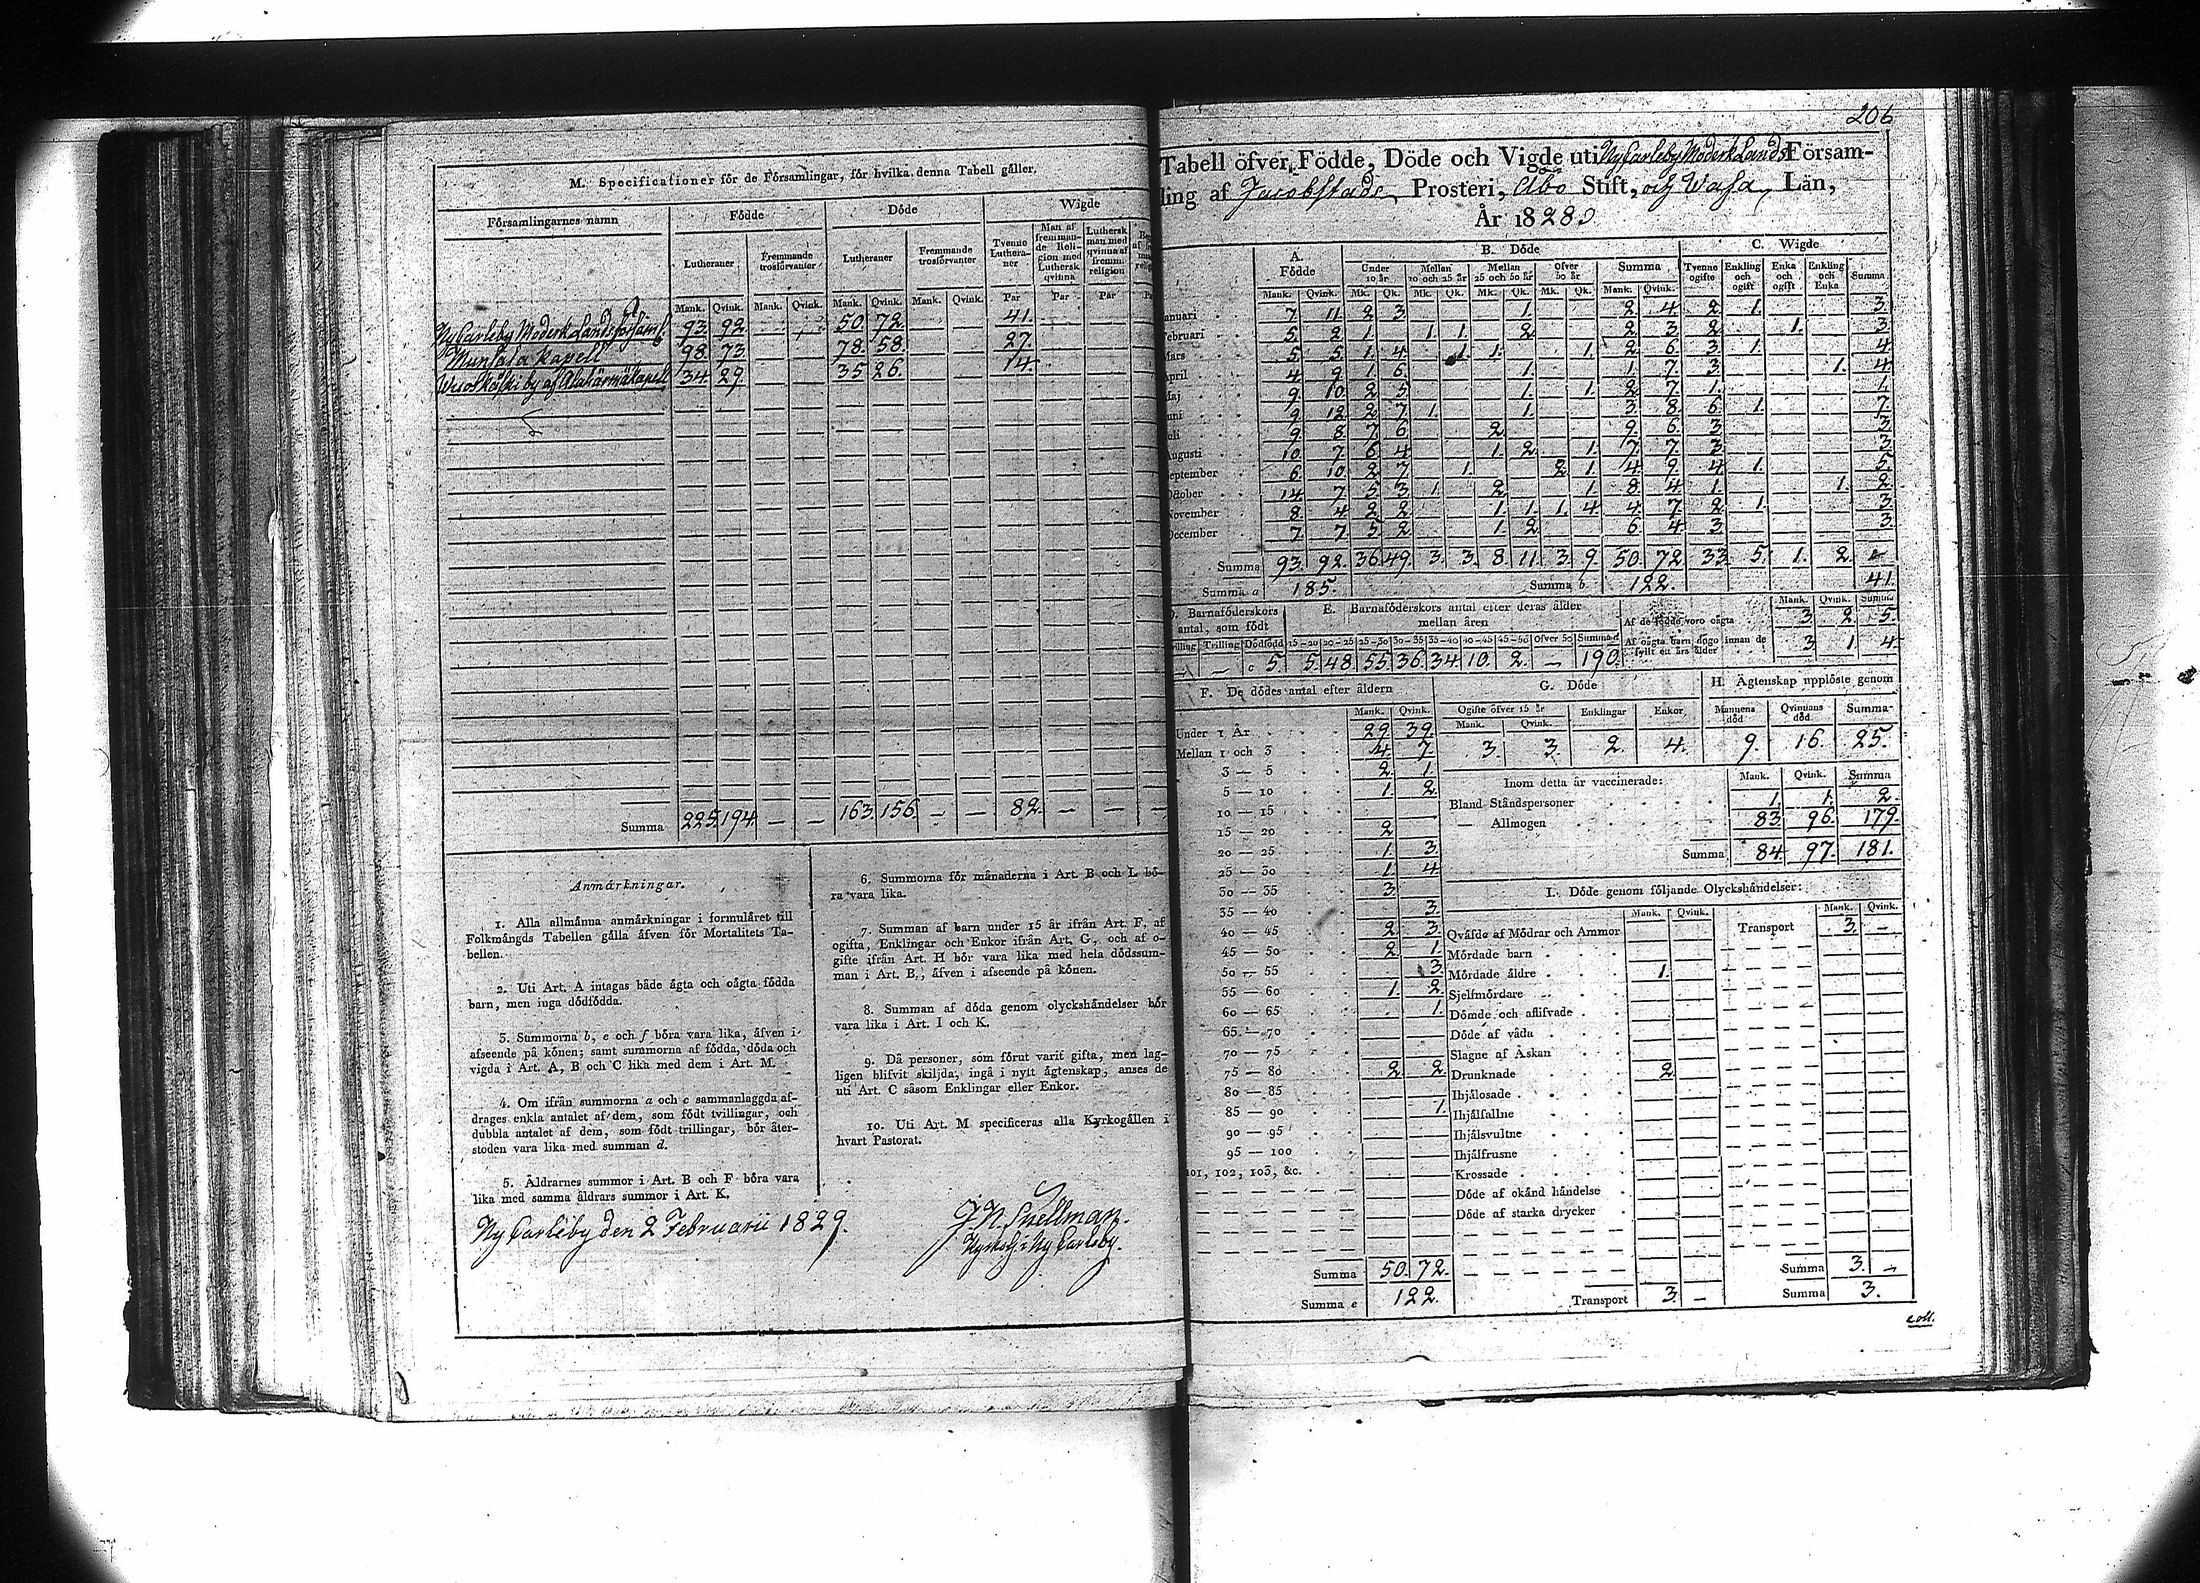 M. Specificationer för de Församlingar, för hvilka denna Tabell gäller.
Församlingarnes namn Födde Döde Wigde
Lutheraner Fremmande trosförvanter Lutheraner Fremmande trosförvanter Tvenne Lutheraner Man af fremmande Religion med Luthersk qvinna Luthersk man med qvinna af fremm. religion
Mank. Qvink. Mank. Qvink. Mank. Qvink. Mank. Qvink. Par Par Par
Ny Carleby Moderk Landsförsaml. 93. 92. — — 50. 72. — — 41.
Munsala Kapell 98. 73. 78. 58. 27.
by af Alakärmä kapell 34. 29. 35 26. 14.
Summa 225. 194. — — 163. 156. — — 82. — — —
Anmärkningar.
1. Alla allmänna anmärkningar i formuläret till
Folkmängds Tabellen gälla äfven för Mortalitets Ta-
bellen.
2. Uti Art. A intagas både ägta och oägta födda
barn, men inga dödfödda.
3. Summorna b, e och f böra vara lika, äfven i
afseende på könen; samt summorna af födda, döda och
vigda i Art. A, B och C lika med dem i Art. M.
4. Om ifrån summorna a och c sammanlaggda af-
drages enkla antalet af dem, som födt tvillingar, och
dubbla antalet af dem, som födt trillingar, bör åter-
stoden vara lika med summan d.
5. Åldrarnes summor i Art. B och F böra vara
lika med samma åldrars summor i Art. K.
6. Summorna för månaderna i Art. B och L bö-
ra vara lika.
7. Summan af barn under 15 år ifrån Art. F, af
ogifta, Enklingar och Enkor ifrån Art. G, och af o-
gifte ifrån Art. H bör vara lika med hela dödssum-
man i Art. B, äfven i afseende på könen.
8. Summan af döda genom olyckshändelser bör
vara lika i Art. I och K.
9. Då personer, som förut varit gifta, men lag-
ligen blifvit skiljda, ingå i nytt ägtenskap, anses de
uti Art. C såsom Enklingar eller Enkor.
10. Uti Art. M specificeras alla Kyrkogällen i
hvart Pastorat.
Ny Carleby den 2 Februarii 1829.
J. N. Snellman.
i Ny Carleby.
206
Tabell öfver Födde, Döde och Vigde uti Ny Carleby Moderk Lands Försam-
ling af Jacobstads Prosteri, Åbo Stift, och Wasa Län,
År 1828
A. Födde B. Döde C. Wigde
Under 10 år Mellan 10 och 25 år Mellan 25 och 50 år Öfver 50 år Summa Tvenne ogifte Enkling och ogift Enka och ogift Enkling och Enka Summa
Mank. Qvink. Mk. Qk. Mk. Qk. Mk. Qk. Mk. Qk. Mank. Qvink.
anuari 7. 11. 2 3. 1. 2 4. 2 1. 3.
ebruari 5. 2. 1. 1. 1. 2 2 3. 2 1. 3.
ars 5. 5. 1. 4. 1. 1. 1. 2 6. 3. 1. 4
pril 4. 9. 1. 6. 1. 1. 7. 3. 1. 4.
aj 9. 10. 2 5. 1. 1. 2 7. 1. 1.
uni 9. 12. 2. 7. 1. 1. 3. 8. 6. 1. 7.
uli 9. 8. 7. 6. 2 9. 6. 3. 3.
ugusti 10. 7. 6. 4. 1. 2. 1. 7. 7. 3. 3.
eptember 6. 10. 2 7. 1. 2 1. 4. 9. 4. 1. 5.
ctober 14. 7. 5. 3. 1. 2 1. 8. 4. 1. 1. 2.
ovember 8. 4. 2 2. 1. 1. 1. 4. 4. 7. 2. 1. 3.
ecember 7. 7. 5. 2. 1. 2 6. 4. 3. 3.
Summa 93. 92. 36. 49. 3. 3. 8. 11. 3. 9. 50. 72. 33. 5. 1. 2.
Summa a 185. Summa b 122. 41.
D. Barnaföderskors antal, som födt
villing Trilling Dödfödd
— — c 5.
E. Barnaföderskors antal efter deras ålder mellan åren
15—20 20—25 25—30 30—35 35—40 40—45 45—50 Öfver 50 Summa d
5. 48. 55. 36. 34. 10. 2. — 190.
Mank. Qvink. Summa
Af de födde voro oägta 3. 2. 5.
Af oägta barn dogo innan de fyllt ett års ålder 3. 1. 4.
F. De dödes antal efter åldern
Mank. Qvink.
Under 1 År 29. 39.
Mellan 1 och 3 4. 7.
3 — 5 2. 1.
5 — 10 1. 2.
10 — 15
15 — 20 2.
20 — 25 1. 3.
25 — 30 1. 4.
30 — 35 3.
35 — 40 3.
40 — 45 2. 3.
45 — 50 2. 1.
50 — 55 3.
55 — 60 1. 2.
60 — 65 1.
65 — 70
70 — 75
75 — 80 2 2.
80 — 85
85 — 90 1.
90 — 95
95 — 100
101, 102, 103, &c.
Summa 50. 72.
Summa e 122.
G. Döde
Ogifte öfver 15 år Enklingar Enkor
Mank. Qvink.
3. 3. 2. 4.
H. Ägtenskap upplöste genom
Mannens död Qvinnans död Summa
9. 16. 25.
Inom detta år vaccinerade: Mank. Qvink. Summa
Bland Ståndspersoner 1. 1. 2.
— Allmogen 83. 96. 179.
Summa 84. 97. 181.
I. Döde genom följande Olyckshändelser:
Mank. Qvink. Mank. Qvink.
Qväfde af Mödrar och Ammor Transport 3. —
Mördade barn
Mördade äldre 1.
Sjelfmördare
Dömde och aflifvade
Döde af våda
Slagne af Åskan
Drunknade 2
Ihjälosade
Ihjälfallne
Ihjälsvultne
Ihjälfrusne
Krossade
Döde af okänd händelse
Döde af starka drycker
Summa 3. —
Transport 3. — Summa 3.
coll.